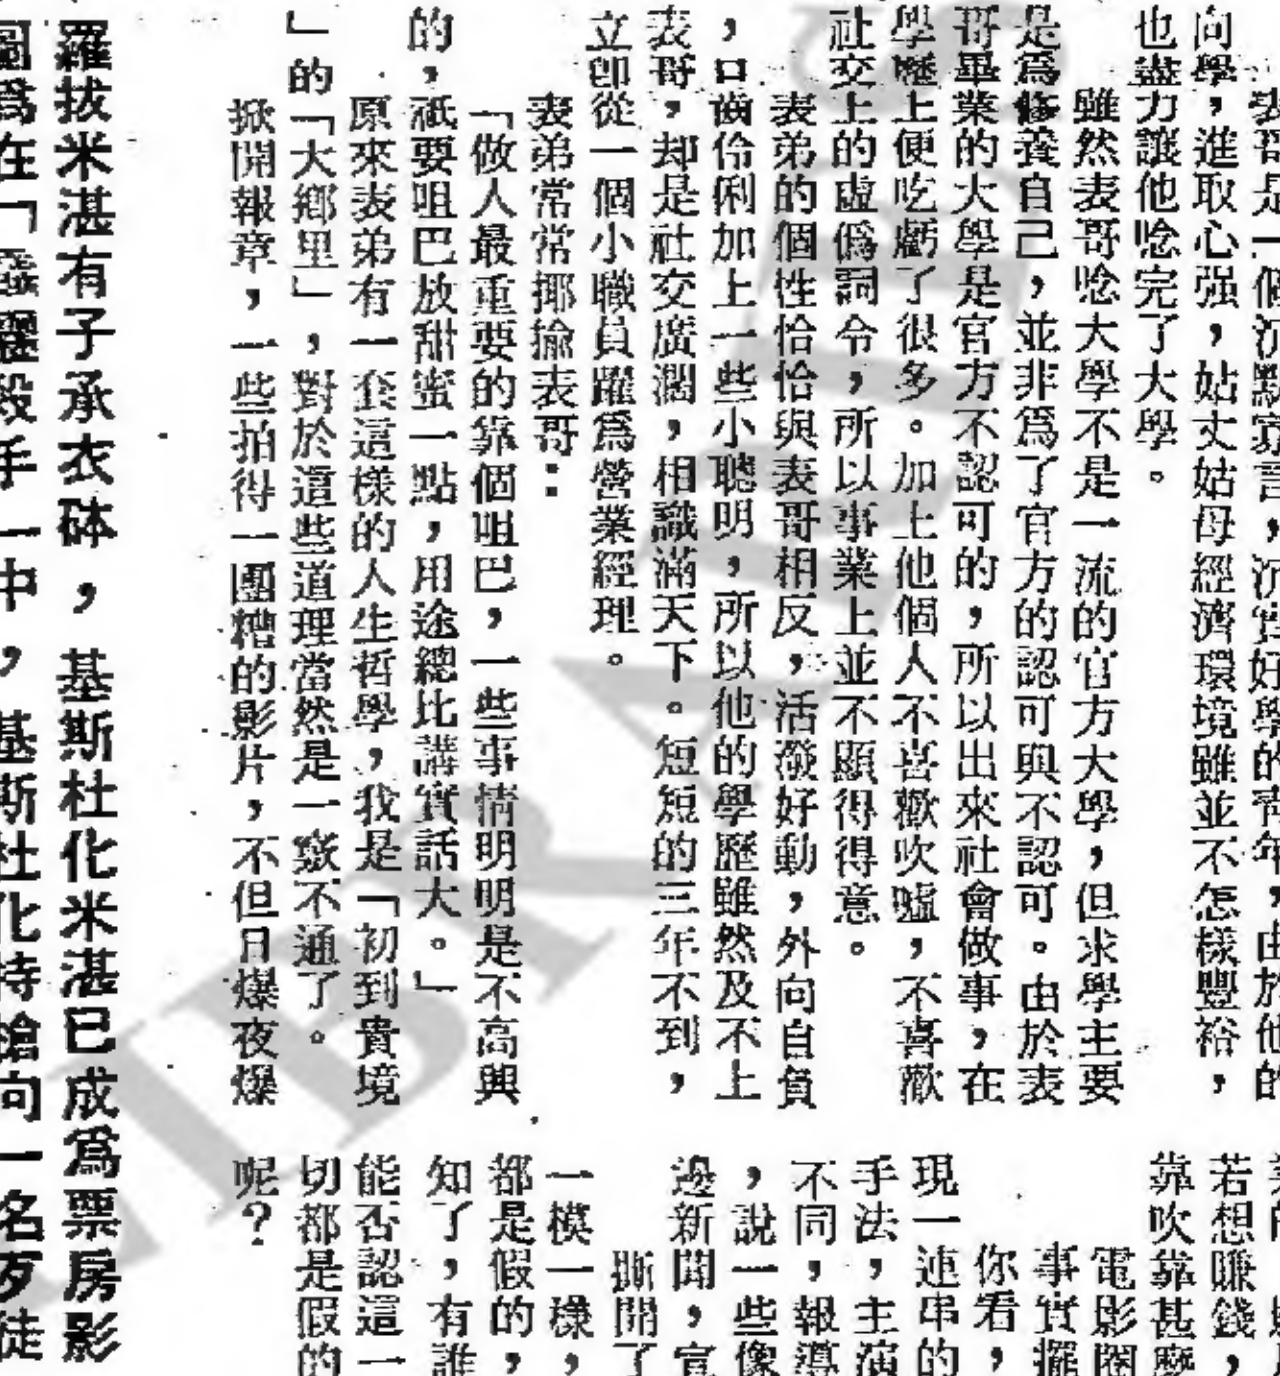 表哥是一個沉默寡言，沉實好學的青年，由於他的
向學，進取心强，姑丈姑母經濟環境雖並不怎樣豐裕，
也盡力讓他唸完了大學。
雖然表哥唸大學不是一流的官方大學，但求學主要
是爲修養自己，並非爲了官方的認可與不認可。由於表
哥畢業的大學是官方不認可的，所以出來社會做事，在
學歷上便吃虧了很多。加上他個人不喜歡吹噓，不喜歡
社交上的虛僞詞令，所以事業上並不顯得得意。
表弟的個性恰恰與表哥相反，活潑好動，外向自負
，口齒伶俐加上一些小聰明，所以他的學歷雖然及不上
表哥，却是社交廣濶，相識滿天下。短短的三年不到，
立卽從一個小職員躍爲營業經理。
表弟常常揶揄表哥：
「做人最重要的靠個咀巴，一些事情明明是不高興
的，祇要咀巴放甜蜜一點，用途總比講實話大。」
原來表弟有一套這樣的人生哲學，我是「初到貴境
」的「大鄉里」，對於這些道理當然是一竅不通了。
掀開報章，一些拍得一團糟的影片，不但日爆夜爆
若想賺錢，
靠吹靠甚麼
電影圈
事實擺
你看，
現一連串的
手法，主演
不同，報導
，說一些像
邊新聞，宣
撕開了
一模一樣，
都是假的，
知了，有誰
能否認這一
切都是假的
呢？
羅拔米湛有子承衣砵，基斯杜化米湛已成爲票房影
圖爲在「霹靂殺手」中，基斯杜化持槍向一名歹徒